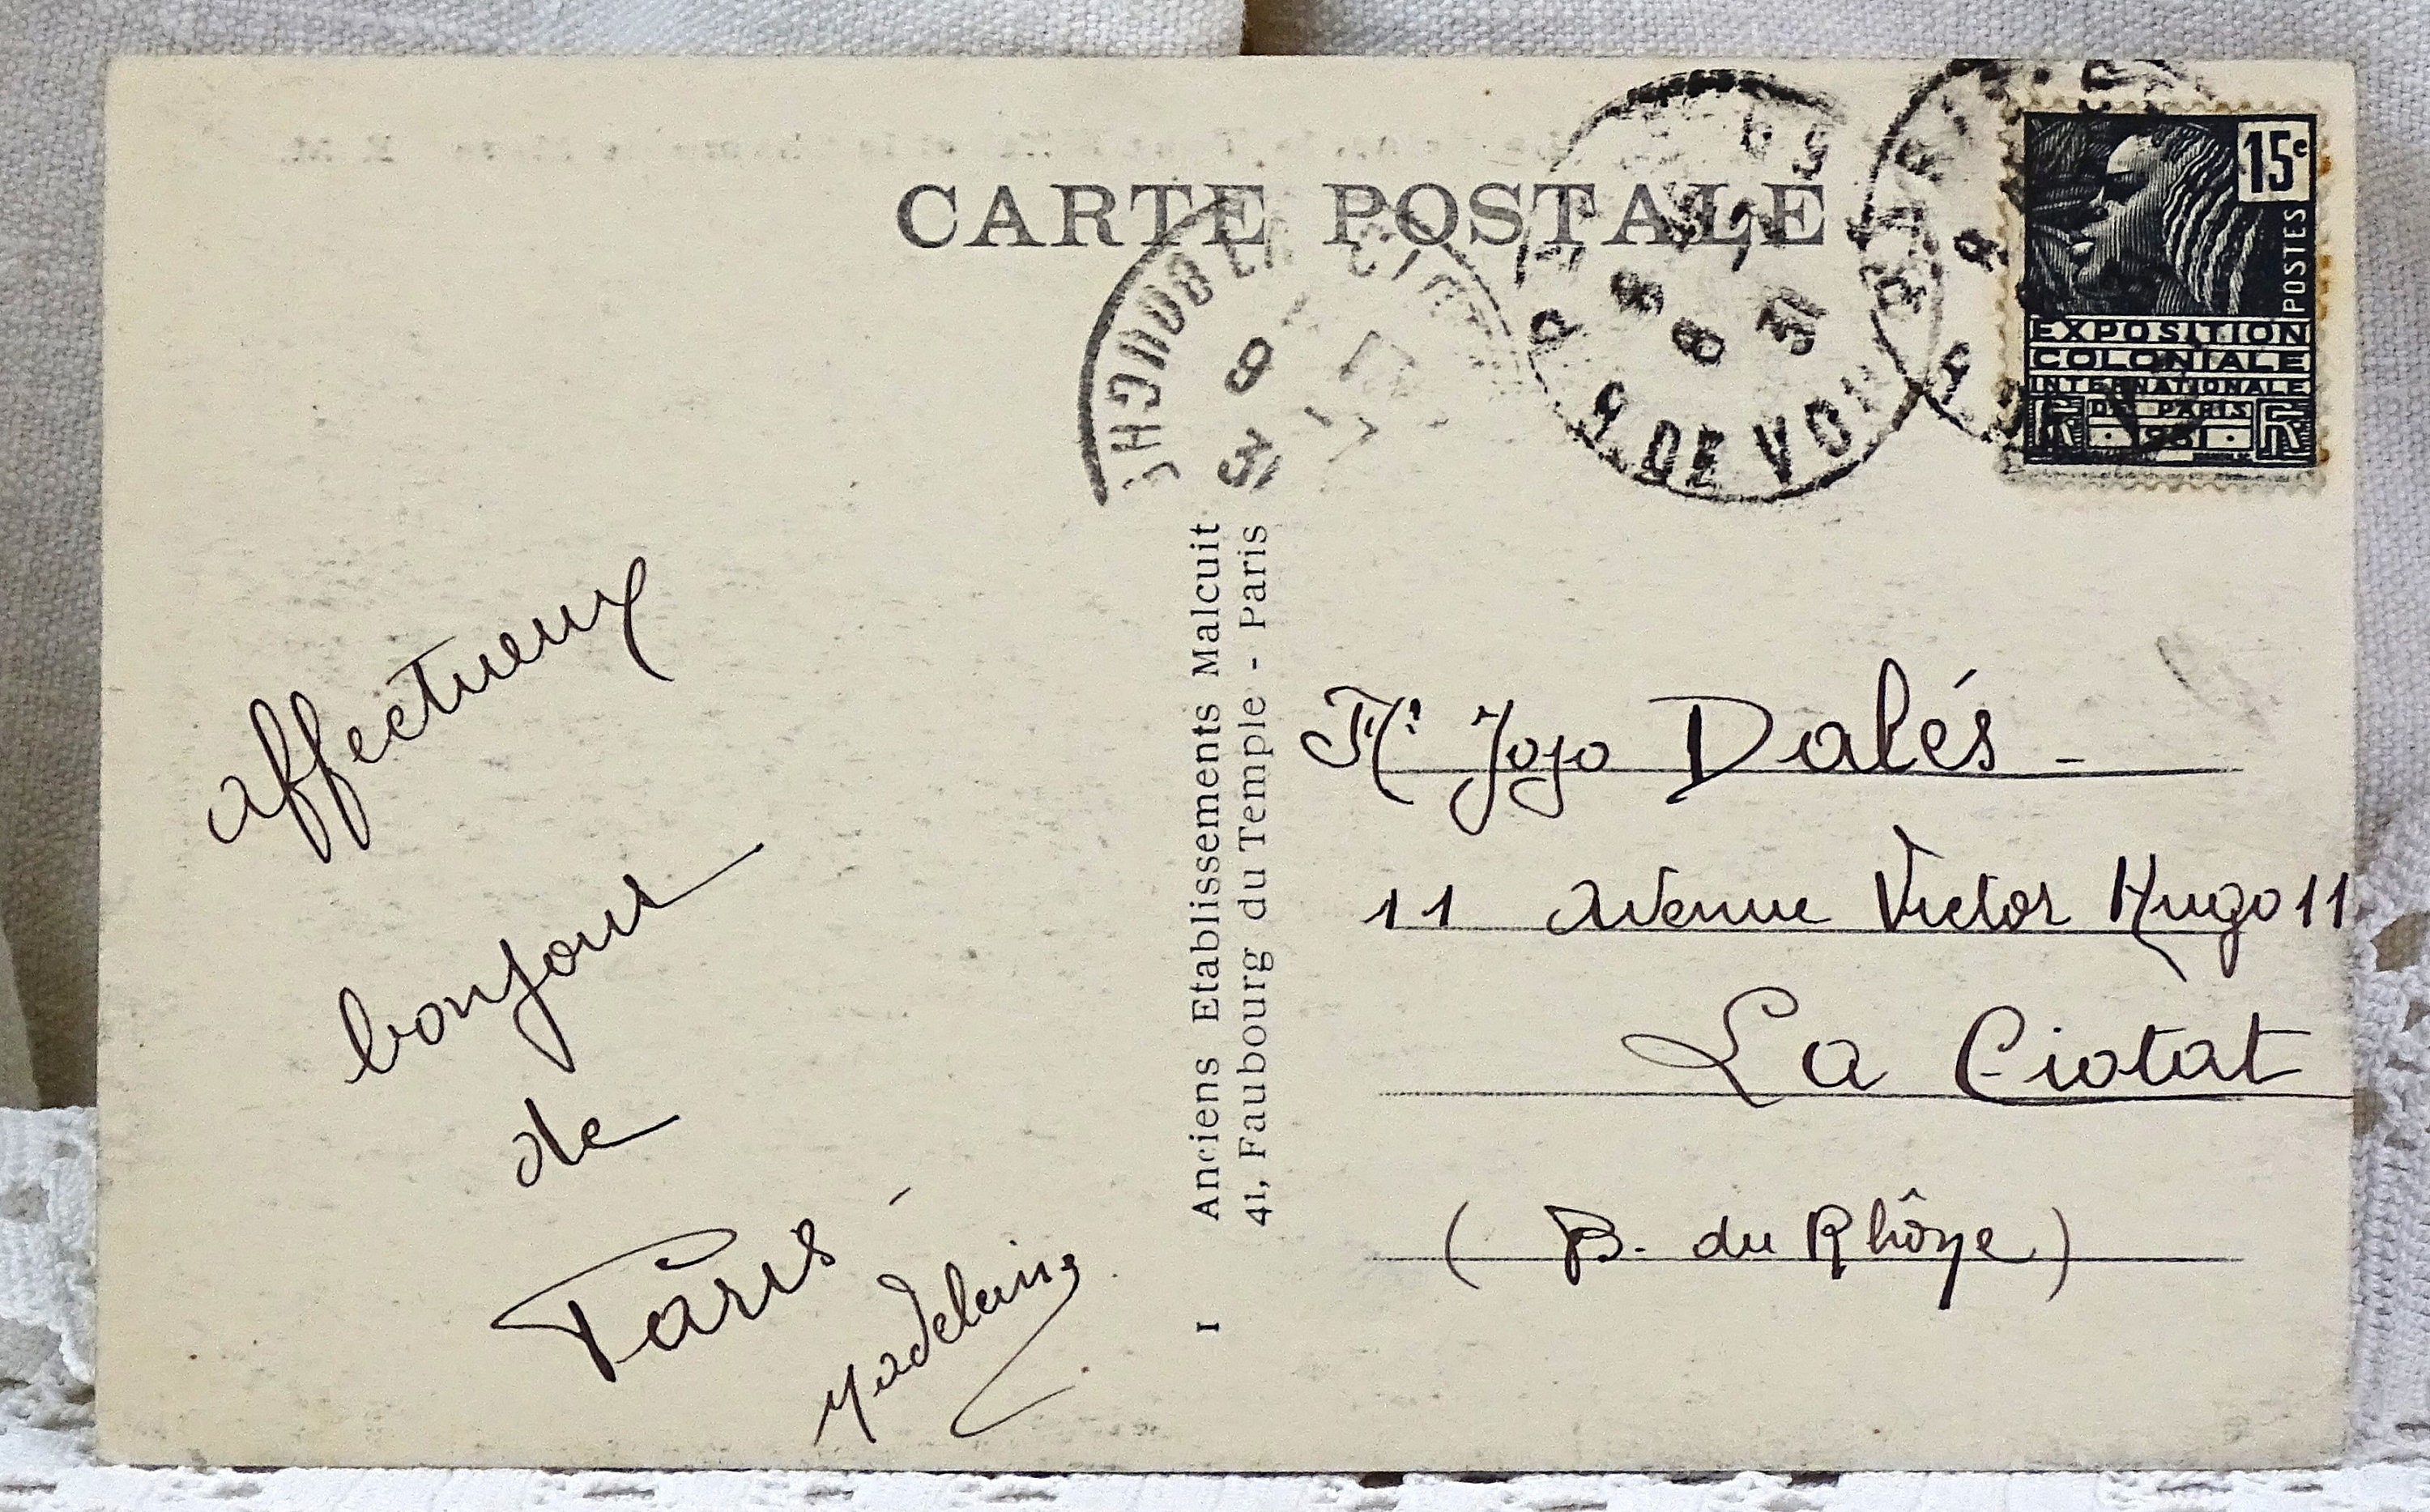 CARTE POSTALE
15c
POSTES
EXPOSITION
COLONIALE
INTERNATIONALE
DE PARIS
1931
8 8 31
R. DE VOU
BOUCH
9
31
affectueux
bonjour
de
Paris
Madeleine
Anciens Etablissements Malcuit
41, Faubourg du Temple - Paris
I
Jojo Dalés -
11 Avenue Victor Hugo 11
La Ciotat
( B. du Rhône )